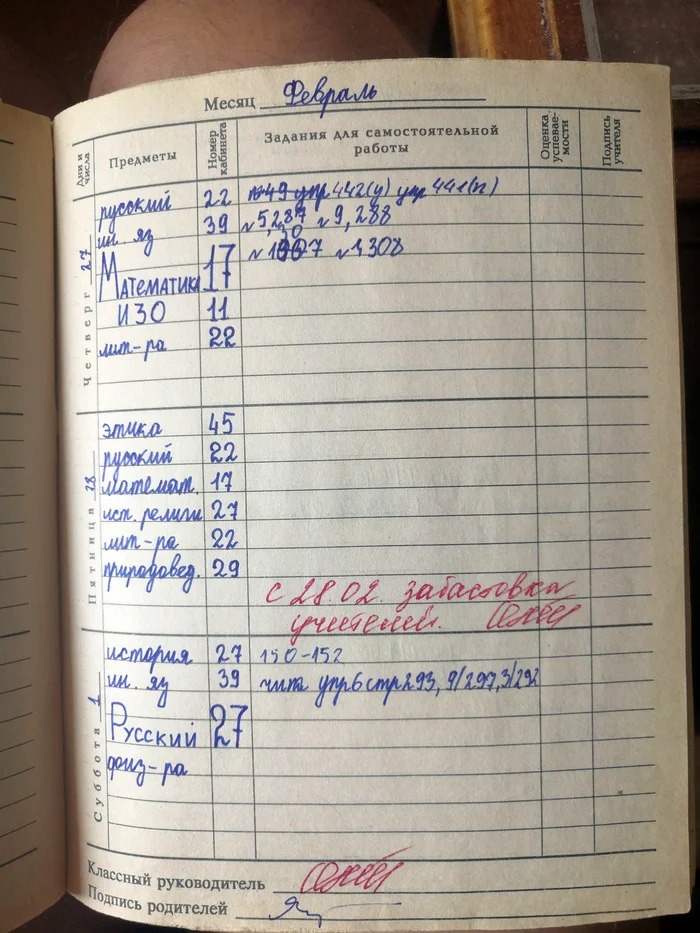 Месяц Февраль
Дни и числа Предметы Номер кабинета Задания для самостоятельной работы Оценка успевае-мости Подпись учителя
Четверг 27
русский 22 упр 442(у) упр 441(п)
ин. яз 39 № 5,287 № 9,288
Математика 17 № 1308
ИЗО 11
лит-ра 22
Пятница 28
этика 45
русский 22
математ. 17
ист. религии 27
лит-ра 22
природовед. 29
С 28.02. забастовка
учителей.
Суббота 1
история 27 150-152
ин. яз 39 упр 6 стр 293, 9/297, 3/292
Русский 27
физ-ра
Классный руководитель
Подпись родителей